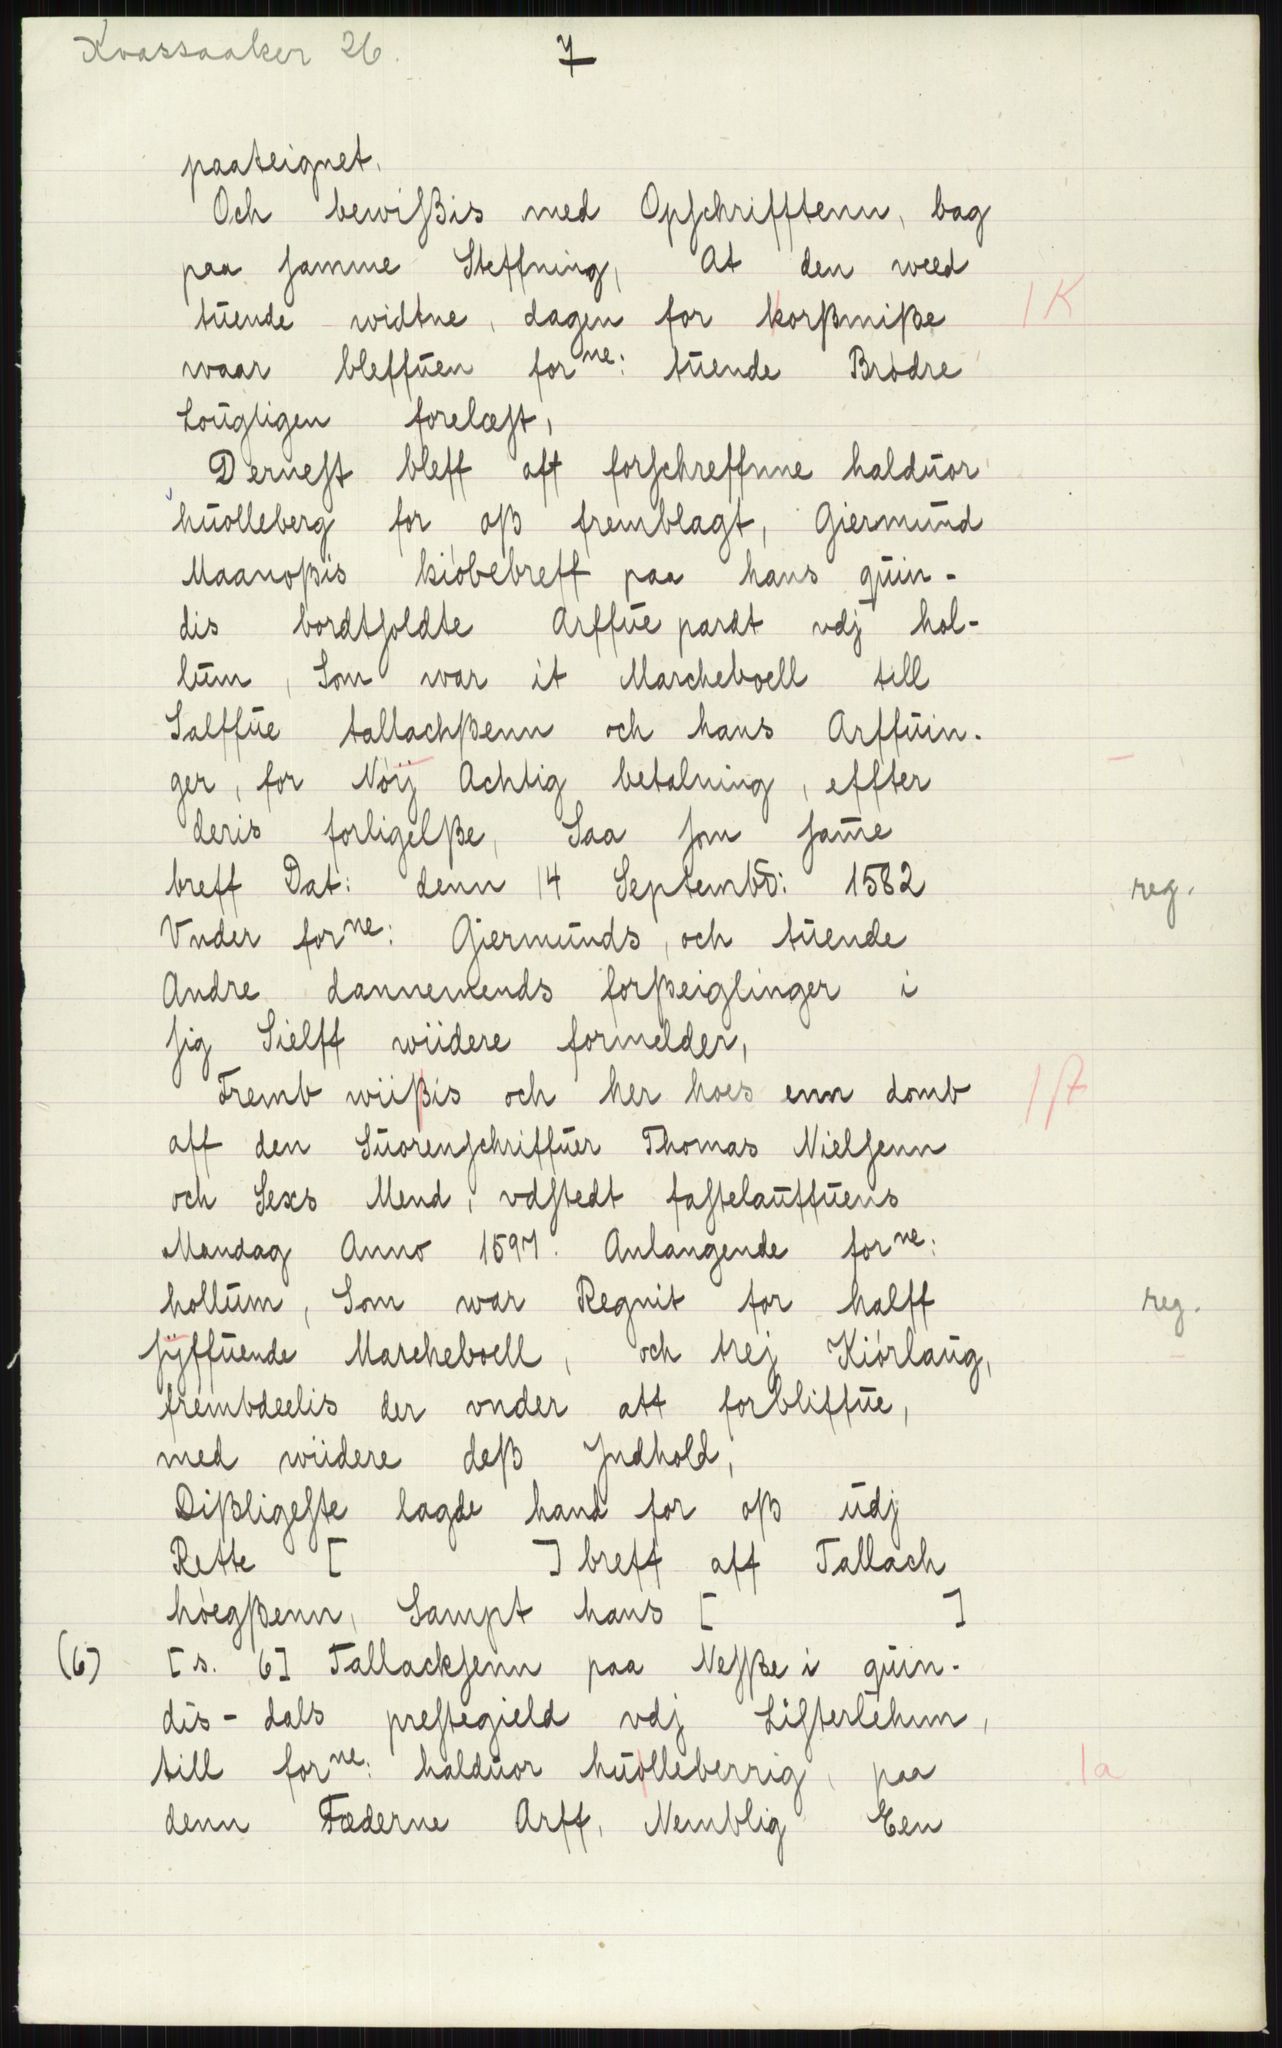 Kvassaaker 26.
7
paateignet.
Och bewißis med Opschrifftenn, bag
paa samme Steffning, At den weed
tuende widtne, dagen for korßmiße
waar bleffuen forne: tuende Brødre
Lougligen forelæst,
Dernest bleff aff forschreffnne halduor
huolleberg for oß fremblagt, Giermund
Maanoßis kiøbebreff paa hans quin-
dis bordtsoldte Arffue pardt vdj hol-
lum, Som war it Marcheboell till
Salffue tallachßenn och hans Arffuin-
ger, for Nøij Achtig betalning, effter
deris forligelße, Saa som same
breff Dat: denn 14 Septembr: 1582
Vnder forne: Giermunds, och tuende
Andre dannemends forßeiglinger i
sig Sielff wiidere formelder,
Fremb wiißis och her hoes enn domb
aff den Suorenschriffuer Thomas Nielsenn
och Sexs Mend, vdstedt fastelauffuens
Mandag Anno 1597. Anlangende forne:
hollum, Som war Regnit for halff
siyffuende Marcheboell, och trej Kiørlaug,
frembdeelis der vnder att forbliffue,
med wiidere deß Jndhold,
Dißligeste lagde hand for oß udj
Rette [ ] breff aff Tallach
høegßenn, Sampt hans [ ]
(6) [s. 6] Tallacksenn paa Nesße i quin-
dis-dals prestegield vdj Listerlehnn,
till forne: halduor huolleberrig, paa
denn Fæderne Arff, Nemblig Een
1 K
reg.
1 ß
reg.
1a